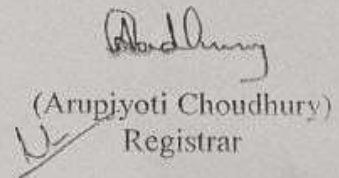 (Arupjyoti Choudhury)
Registrar